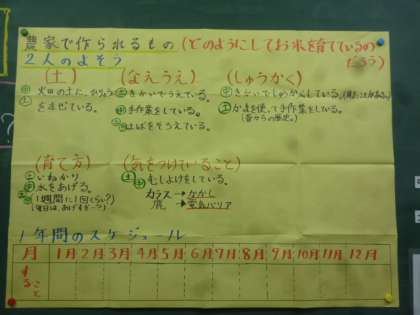 農家で作られるもの(どのようにしてお米を育てているのだろう)
2人のよそう
(土)
火田の土に、ひりょう
をまぜている。
(なえうえ)
きかいでうえている。
手作業をしている。
はばをそろえている。
(しゅうかく)
きかいでしゅうかくしている。
かまを使って手作業をしている。
(昔からの歴史。)
(育て方)
いねかり
水をあげる。
1週間に1回くらい?
(毎日は、あげすぎ…?)
(気をつけていること)
虫よけをしている。
カラス→かかし
鹿→電気バリア
1年間のスケジュール
月 1月 2月 3月 4月 5月 6月 7月 8月 9月 10月 11月 12月
すること